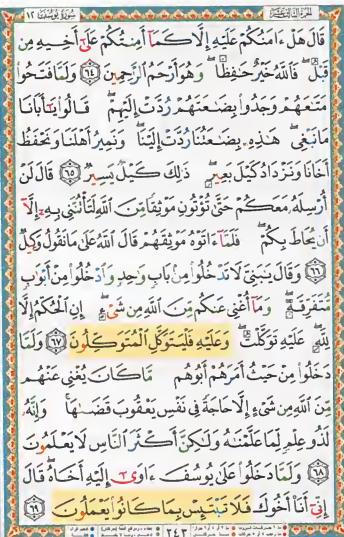 سُورَةُ يُوسُفَ ١٢
قَالَ هَلْ ءَامَنُكُمْ عَلَيْهِ إِلَّا كَمَآ أَمِنتُكُمْ عَلَىٰٓ أَخِيهِ مِن
قَبْلُ ۖ فَٱللَّهُ خَيْرٌ حَـٰفِظًا ۖ وَهُوَ أَرْحَمُ ٱلرَّٰحِمِينَ ٦٤ وَلَمَّا فَتَحُوا۟
مَتَـٰعَهُمْ وَجَدُوا۟ بِضَـٰعَتَهُمْ رُدَّتْ إِلَيْهِمْ ۖ قَالُوا۟ يَـٰٓأَبَانَا
مَا نَبْغِى ۖ هَـٰذِهِۦ بِضَـٰعَتُنَا رُدَّتْ إِلَيْنَا ۖ وَنَمِيرُ أَهْلَنَا وَنَحْفَظُ
أَخَانَا وَنَزْدَادُ كَيْلَ بَعِيرٍ ۖ ذَٰلِكَ كَيْلٌ يَسِيرٌ ٦٥ قَالَ لَنْ
أُرْسِلَهُۥ مَعَكُمْ حَتَّىٰ تُؤْتُونِ مَوْثِقًا مِّنَ ٱللَّهِ لَتَأْتُنَّنِى بِهِۦٓ إِلَّآ
أَن يُحَاطَ بِكُمْ ۖ فَلَمَّآ ءَاتَوْهُ مَوْثِقَهُمْ قَالَ ٱللَّهُ عَلَىٰ مَا نَقُولُ وَكِيلٌ
٦٦ وَقَالَ يَـٰبَنِىَّ لَا تَدْخُلُوا۟ مِنۢ بَابٍ وَٰحِدٍ وَٱدْخُلُوا۟ مِنْ أَبْوَٰبٍ
مُّتَفَرِّقَةٍ ۖ وَمَآ أُغْنِى عَنكُم مِّنَ ٱللَّهِ مِن شَىْءٍ ۖ إِنِ ٱلْحُكْمُ إِلَّا
لِلَّهِ ۖ عَلَيْهِ تَوَكَّلْتُ ۖ وَعَلَيْهِ فَلْيَتَوَكَّلِ ٱلْمُتَوَكِّلُونَ ٦٧ وَلَمَّا
دَخَلُوا۟ مِنْ حَيْثُ أَمَرَهُمْ أَبُوهُم مَّا كَانَ يُغْنِى عَنْهُم
مِّنَ ٱللَّهِ مِن شَىْءٍ إِلَّا حَاجَةً فِى نَفْسِ يَعْقُوبَ قَضَىٰهَا ۚ وَإِنَّهُۥ
لَذُو عِلْمٍ لِّمَا عَلَّمْنَـٰهُ وَلَـٰكِنَّ أَكْثَرَ ٱلنَّاسِ لَا يَعْلَمُونَ
٦٨ وَلَمَّا دَخَلُوا۟ عَلَىٰ يُوسُفَ ءَاوَىٰٓ إِلَيْهِ أَخَاهُ ۖ قَالَ
إِنِّىٓ أَنَا۠ أَخُوكَ فَلَا تَبْتَئِسْ بِمَا كَانُوا۟ يَعْمَلُونَ ٦٩
٢٤٣